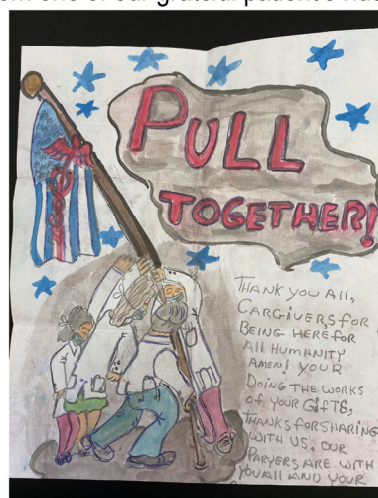 om one of our grateful patients
PULL
TOGETHER!
THANK YOU ALL,
CARGIVERS FOR
BEING HERE FOR
All HUMANITY
AMEN! YOUR
DOING THE WORKS
OF YOUR GIFTS,
THANKS FOR SHARING
WITH US. OUR
PARYERS ARE WITH
YOU All AND YOUR